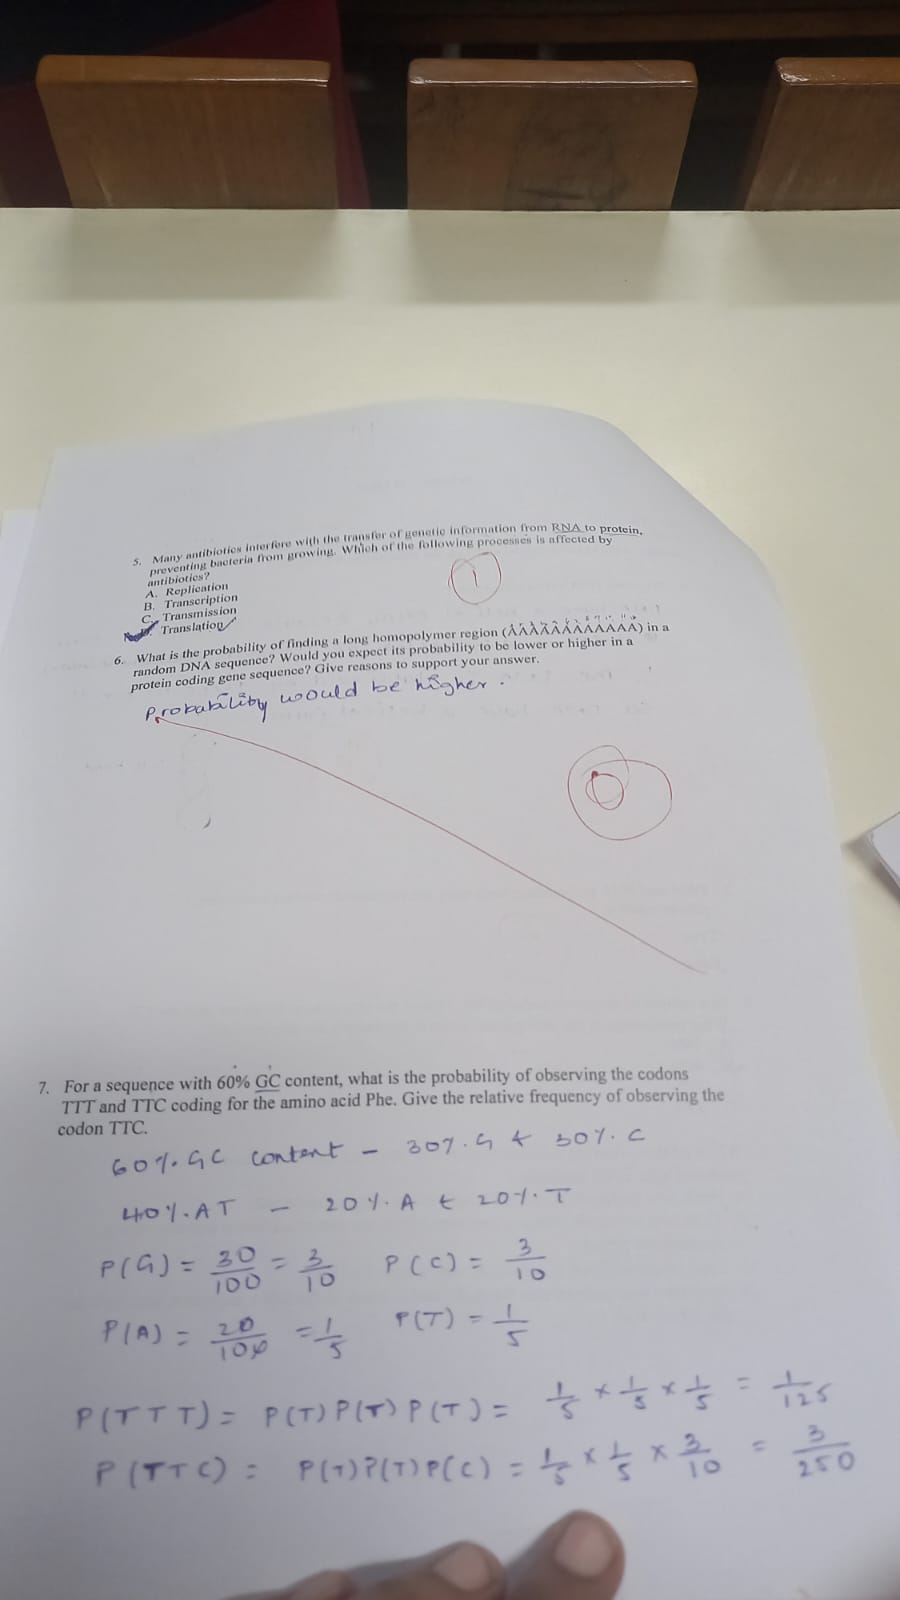 5. Many antibiotics interfere with the transfer of genetic information from RNA to protein,
preventing bacteria from growing. Which of the following processes is affected by
antibiotics?
A. Replication
B. Transcription
C. Transmission
D. Translation
1
6. What is the probability of finding a long homopolymer region (AAAAAAAAAAAA) in a
random DNA sequence? Would you expect its probability to be lower or higher in a
protein coding gene sequence? Give reasons to support your answer.
Probability would be higher.
0
7. For a sequence with 60% GC content, what is the probability of observing the codons
TTT and TTC coding for the amino acid Phe. Give the relative frequency of observing the
codon TTC.
60% GC content - 30% G & 30% C
40% AT - 20% A & 20% T
P(G) = 30/100 = 3/10 P(C) = 3/10
P(A) = 20/100 = 1/5 P(T) = 1/5
P(TTT) = P(T)P(T)P(T) = 1/5 × 1/5 × 1/5 = 1/125
P(TTC) = P(T)P(T)P(C) = 1/5 × 1/5 × 3/10 = 3/250